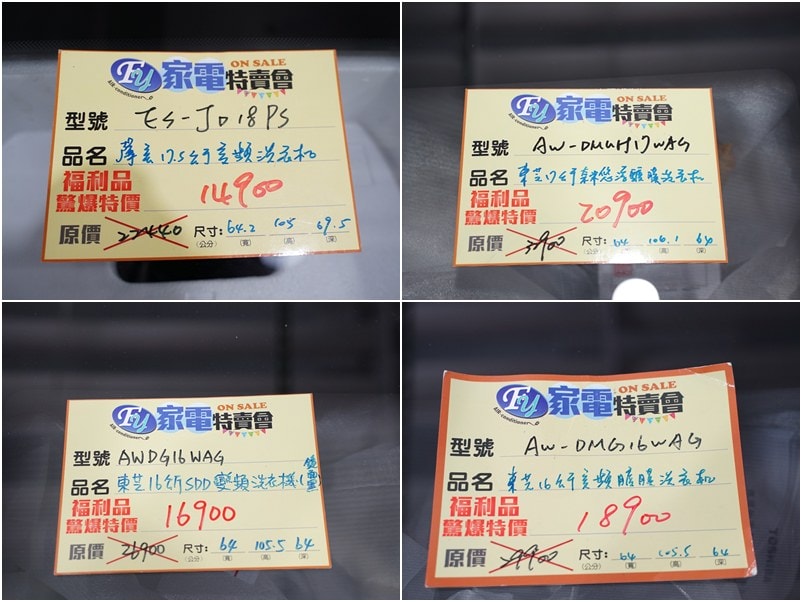 Fy 家電特賣會 ON SALE
Air conditioner
型號 ES-JD18PS
品名 17.5公斤变頻洗衣机
福利品
驚爆特價 14900
原價 22440 尺寸: 64.2 105 69.5
(公分) (寬) (高) (深)
Fy 家電特賣會 ON SALE
Air conditioner
型號 AW-DMUH17WAG
品名 東芝17公斤奈米悠浮鍍膜洗衣机
福利品
驚爆特價 20900
原價 尺寸: 64 106.1
(公分) (寬) (高) (深)
Fy 家電特賣會 ON SALE
Air conditioner
型號 AWDG16WAG
品名 東芝16公斤SDD變頻洗衣機
福利品
驚爆特價 16900
原價 26900 尺寸: 64 105.5 64
(公分) (寬) (高) (深)
Fy 家電特賣會 ON SALE
Air conditioner
型號 AW-DMG16WAG
品名 東芝16公斤变頻鍍膜洗衣机
福利品
驚爆特價 18900
原價 29900 尺寸: 64 105.5 64
(公分) (寬) (高) (深)